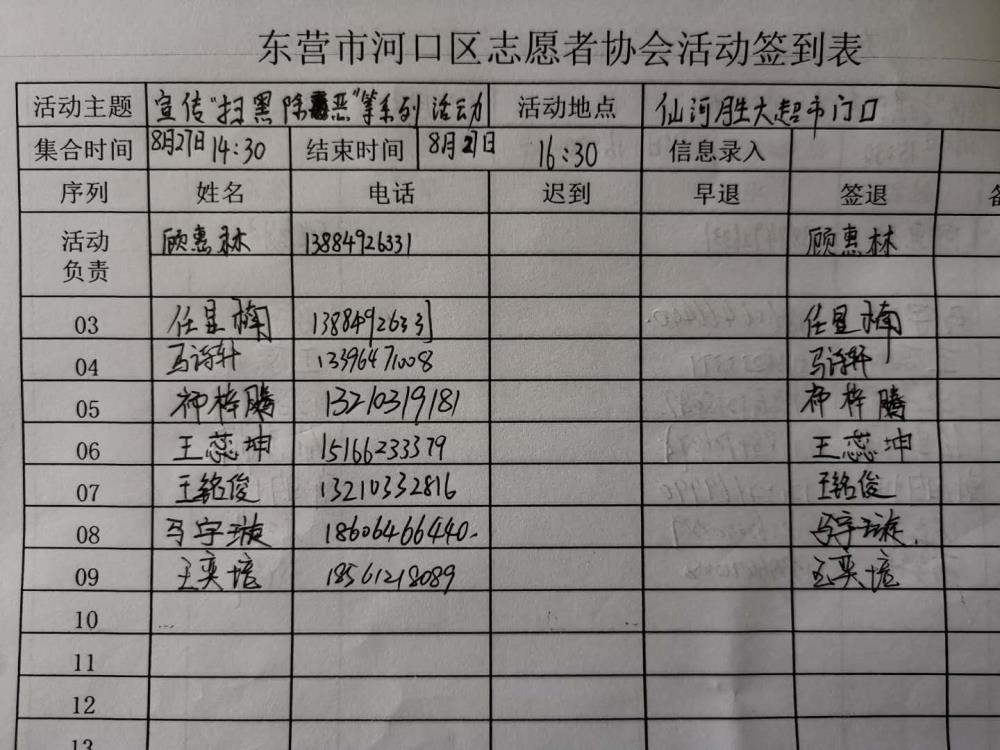 东营市河口区志愿者协会活动签到表
活动主题 宣传"扫黑除恶"等系列活动 活动地点 仙河胜大超市门口
集合时间 8月27日 14:30 结束时间 8月27日 16:30 信息录入
序列 姓名 电话 迟到 早退 签退
活动负责 顾惠林 13884926331 顾惠林
03 任昱楠 13884926331 任昱楠
04 马诗轩 13396471008 马诗轩
05 祁梓腾 13210319181 祁梓腾
06 王蕊坤 15166233379 王蕊坤
07 王铭俊 13210332816 王铭俊
08 马宇璇 18606466440. 马宇璇.
09 王奕境 18561218089 王奕境
10
11
12
13